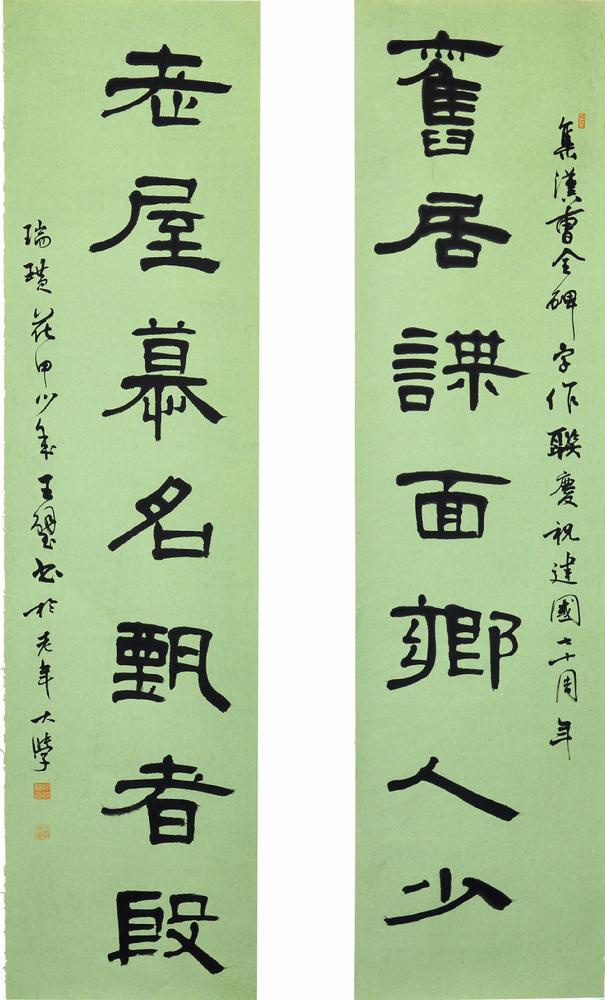 集漢曹全碑字作聯慶祝建國七十周年
舊居謀面鄉人少
老屋慕名甄者段
瑞璜花甲少年王璧書於老年大學